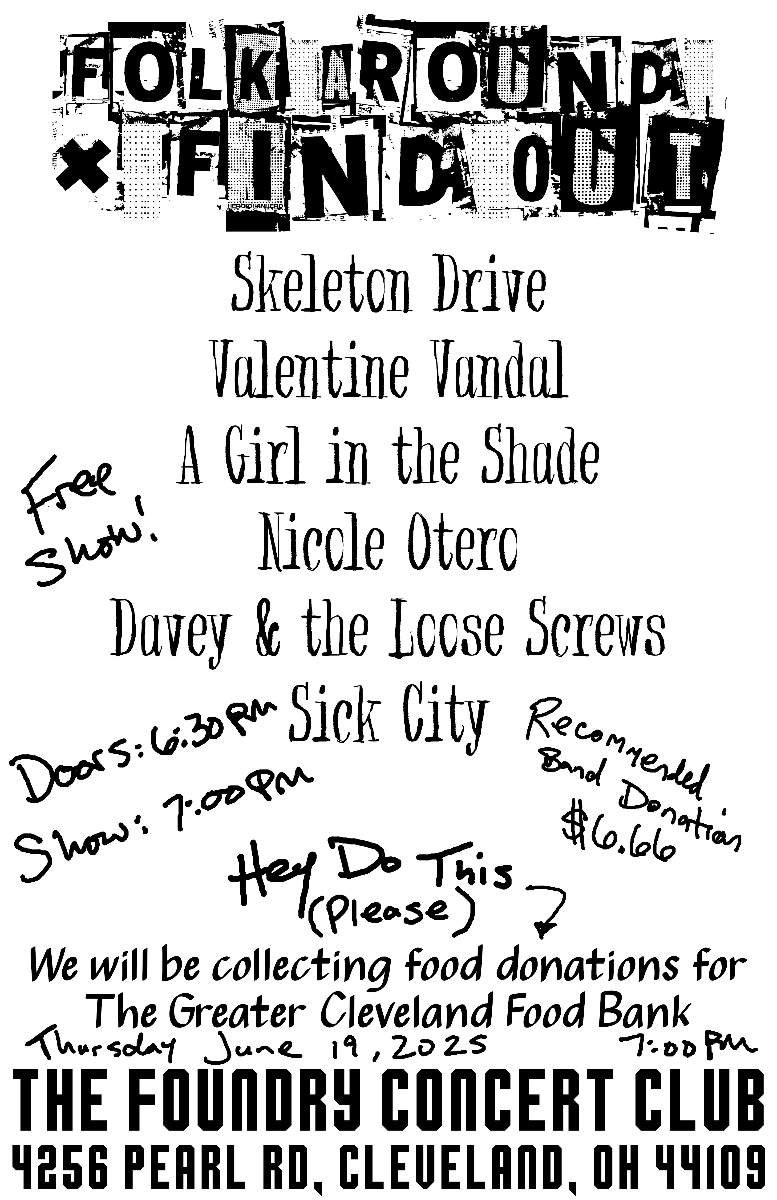 FOLK AROUND
× FIND OUT
Skeleton Drive
Valentine Vandal
A Girl in the Shade
Free
Show!
Nicole Otero
Davey & the Loose Screws
Sick City
Doors: 6:30 PM
Show: 7:00 PM
Recommended
Band Donation
$6.66
Hey Do This
(Please)
We will be collecting food donations for
The Greater Cleveland Food Bank
Thursday June 19, 2025 7:00 PM
THE FOUNDRY CONCERT CLUB
4256 PEARL RD, CLEVELAND, OH 44109